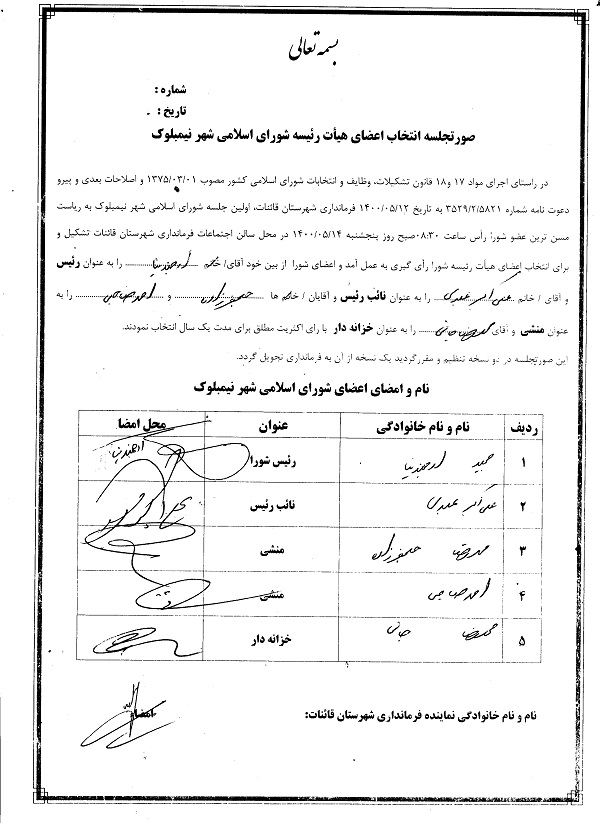 بسمه تعالی
شماره :
تاریخ : .
صورتجلسه انتخاب اعضای هیأت رئیسه شورای اسلامی شهر نیمبلوک
در راستای اجرای مواد ۱۷ و۱۸ قانون تشکیلات، وظایف و انتخابات شورای اسلامی کشور مصوب ۱۳۷۵/۰۳/۰۱ و اصلاحات بعدی و پیرو
دعوت نامه شماره ۳۵۲۹/۲/۵۸۲۱ به تاریخ ۱۴۰۰/۰۵/۱۲ فرمانداری شهرستان قائنات، اولین جلسه شورای اسلامی شهر نیمبلوک به ریاست
مسن ترین عضو شورا رأس ساعت ۰۸:۳۰صبح روز پنجشنبه ۱۴۰۰/۰۵/۱۴ در محل سالن اجتماعات فرمانداری شهرستان قائنات تشکیل و
برای انتخاب اعضای هیأت رئیسه شورا رأی گیری به عمل آمد و اعضای شورا از بین خود آقای/ خانم ارجمندنیا را به عنوان رئیس
و آقای / خانم علی اکبر را به عنوان نائب رئیس و آقایان / خانم ها و را به
عنوان منشی و آقای را به عنوان خزانه دار با رای اکثریت مطلق برای مدت یک سال انتخاب نمودند.
این صورتجلسه در دو سخه تنظیم و مقرر گردید یک نسخه از آن به فرمانداری تحویل گردد.
نام و امضای اعضای شورای اسلامی شهر نیمبلوک
ردیف نام و نام خانوادگی عنوان محل امضا
۱ ارجمندنیا رئیس شورا ارجمندنیا
۲ علی اکبر نائب رئیس
۳ منشی
۴ منشی
۵ خزانه دار
نام و نام خانوادگی نماینده فرمانداری شهرستان قائنات: امضاء